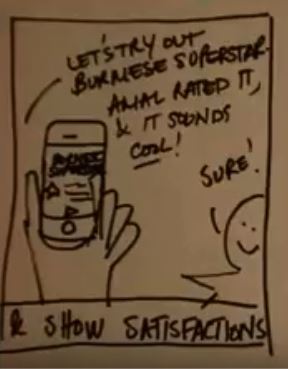 LET'S TRY OUT
BURMESE SUPERSTAR.
AMAL RATED IT,
& IT SOUNDS
COOL!
SURE!
BURMESE
SUPERSTAR
& SHOW SATISFACTIONS